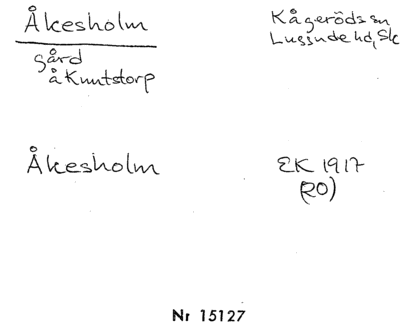 Åkesholm
gård
å Knutstorp
Kågeröds sn
Luggude hd, Sk
Åkesholm
EK 1917
(RO)
Nr 15127